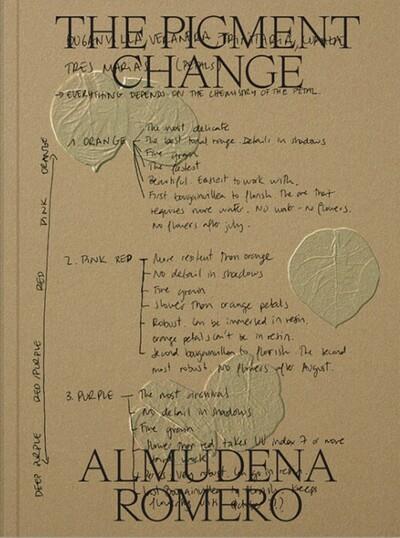 THE PIGMENT
CHANGE
TRES MARIAS (PETALS)
→ EVERYTHING DEPENDS ON THE CHEMISTRY OF THE PETAL.
ORANGE
PINK
RED
RED/PURPLE
DEEP PURPLE
1. ORANGE
The most delicate
The best tonal range. Details in shadows
Fine grain
The fastest
Beautiful. Easiest to work with.
First bougainvillea to flourish. The one that
requires more water. No water - No flowers.
No flowers after july.
2. PINK RED
More resilient than orange
No detail in shadows
Fine grain
Slower than orange petals
Robust. Can be immersed in resin,
orange petals can't be in resin.
Second bougainvillea to flourish. The second
most robust. No flowers after August.
3. PURPLE
The most
No detail in shadows
Fine grain
Slower than red, takes UV index 7 or more
ALMUDENA
ROMERO